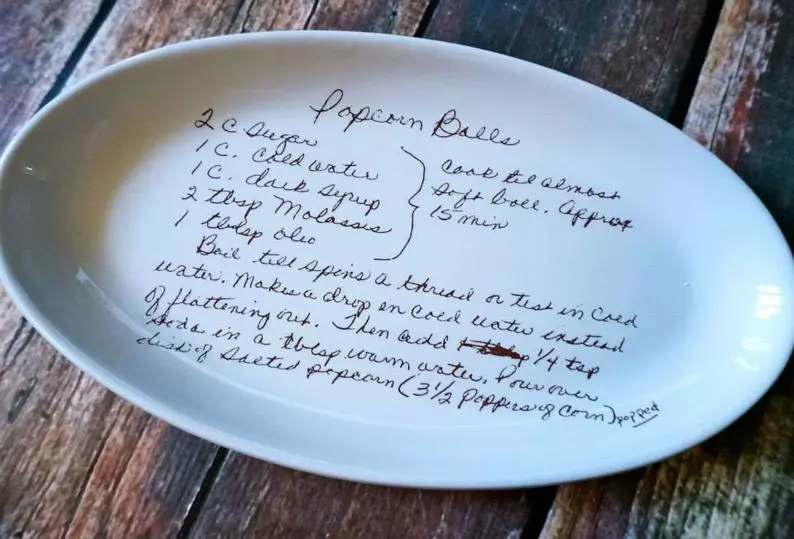 Popcorn Balls
2 c sugar
1 c. cold water
1 c. dark syrup
2 tbsp Molasses
1 tblsp oleo
Cook til almost
soft ball. Approx
15 min
Boil till spins a thread or test in cold
water. Makes a drop in cold water instead
of flattening out. Then add 1/4 tsp
soda in a tblsp warm water. Pour over
dish of salted popcorn (3 1/2 Poppers of corn) popped